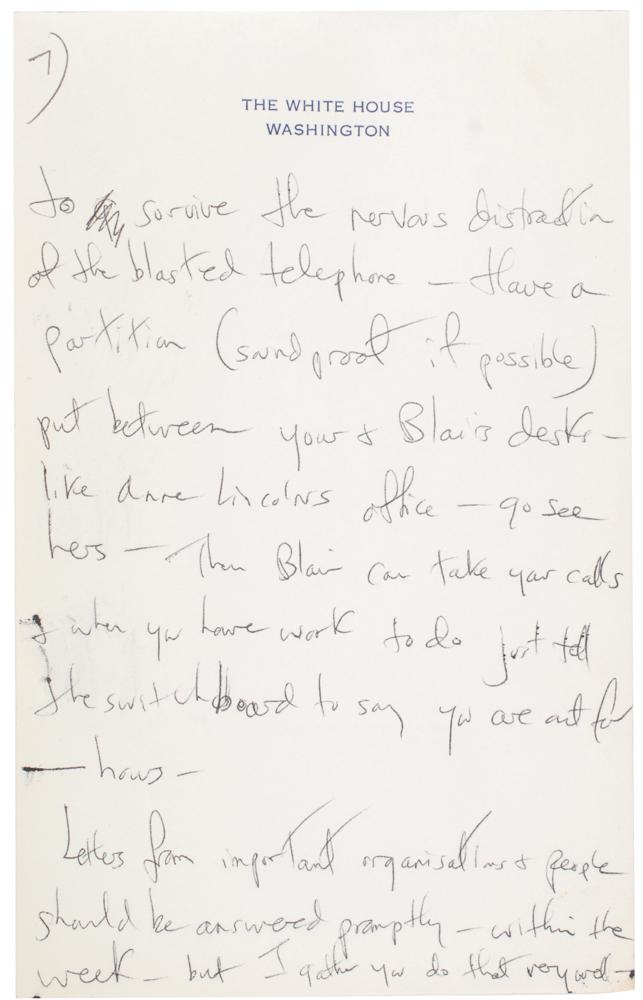 7)
THE WHITE HOUSE
WASHINGTON
to survive the nervous distraction
of the blasted telephone — Have a
partition (soundproof if possible)
put between your & Blairs desks —
like Anne Lincolns office — go see
hers — Then Blair can take your calls
& when you have work to do just tell
the switchboard to say you are out for
— hours —
Letters from important organisations & people
should be answered promptly — within the
week — but I gather you do that very well —